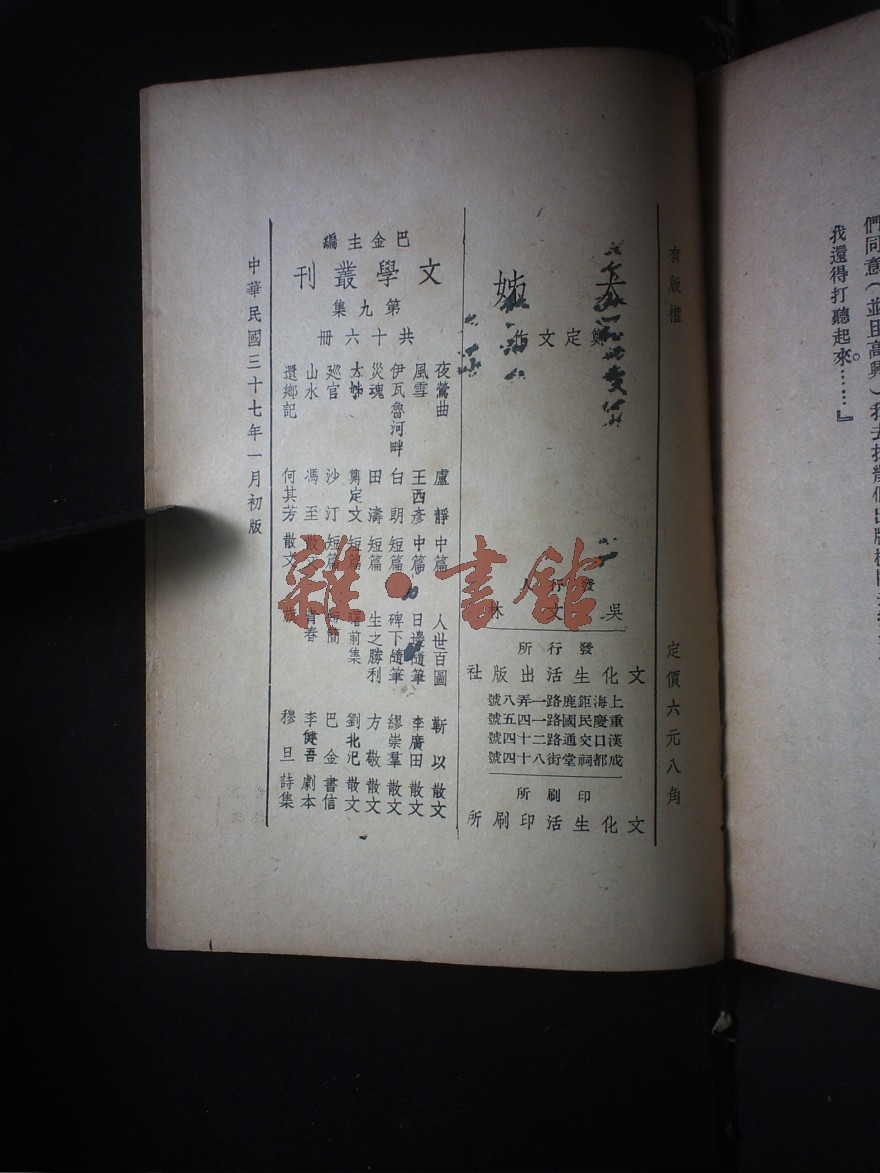 們同意(並且高興)我去
我還得打聽起來……』
有版權
定價六元八角
大姊
鄭定文作
發行人
吳文林
發行所
文化生活出版社
上海鉅鹿路一弄八號
重慶民國路一四五號
漢口交通路二十四號
成都祠堂街八十四號
印刷所
文化生活印刷所
巴金主編
文學叢刊
第九集
共十六冊
夜鶯曲 盧靜 中篇
風雪 王西彥 中篇
伊瓦魯河畔 白朗 短篇
災魂 田濤 短篇
大姊 鄭定文 短篇
巡官 沙汀 短篇
山水 馮至 散文
還鄉記 何其芳 散文
人世百圖 靳以 散文
日邊隨筆 李廣田 散文
碑下隨筆 繆崇羣 散文
生之勝利 方敬 散文
曙前集 劉北汜 散文
簡 巴金 書信
青春 李健吾 劇本
旗 穆旦 詩集
中華民國三十七年一月初版
雜·書館